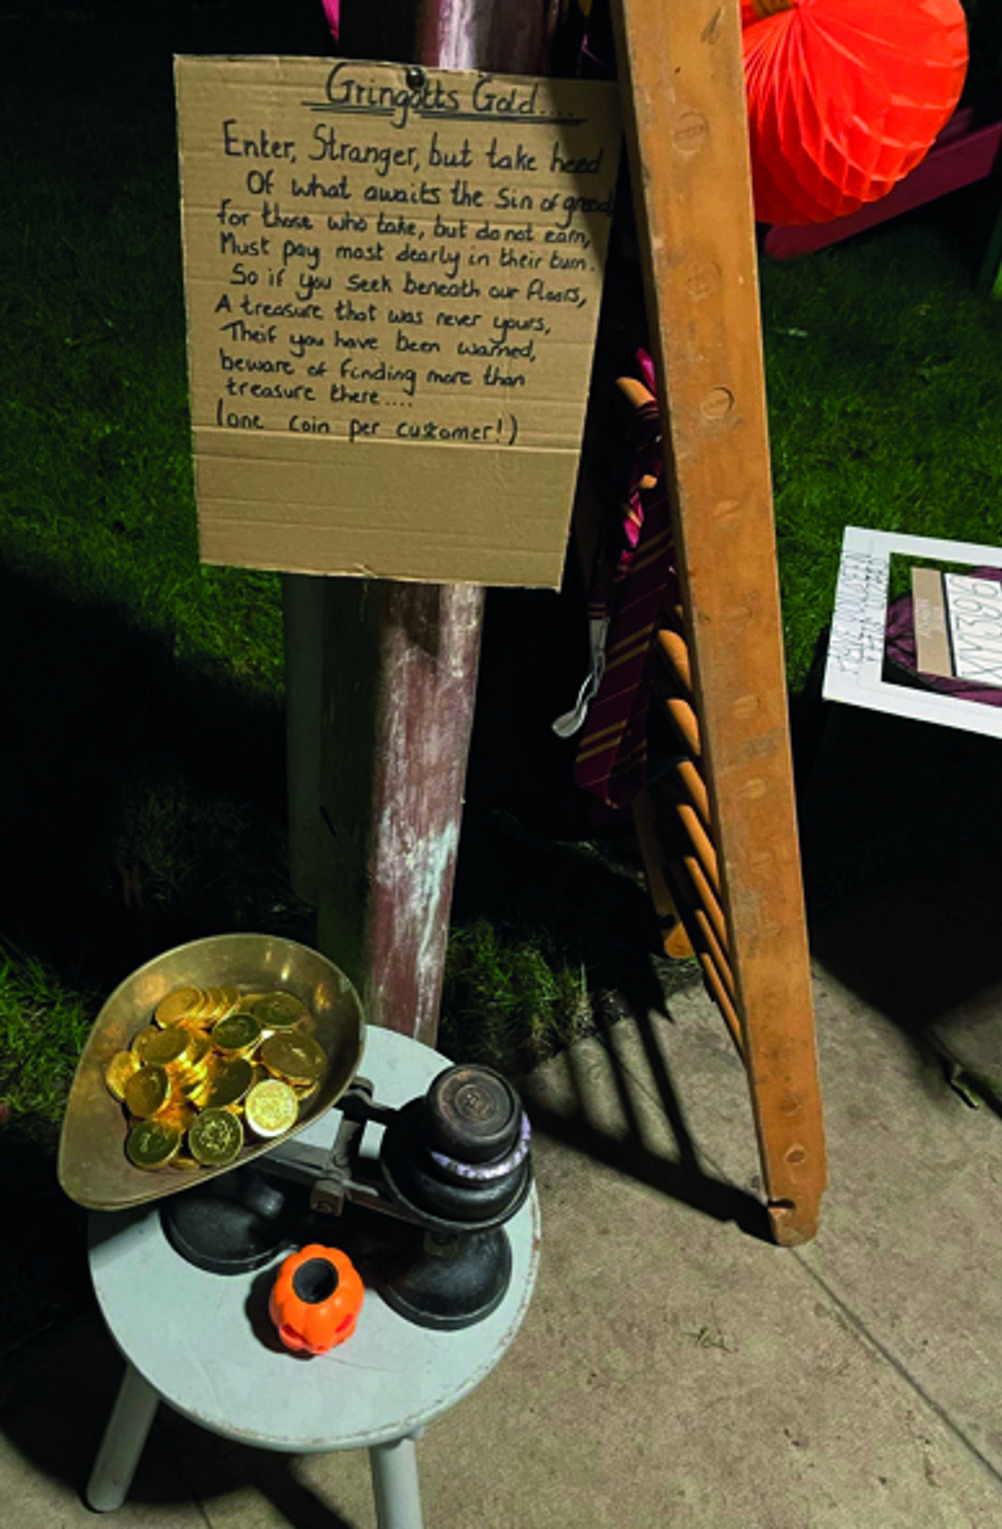 Gringotts Gold....
Enter, Stranger, but take heed
Of what awaits the Sin of greed
for those who take, but do not earn,
Must pay most dearly in their turn.
So if you seek beneath our floors,
A treasure that was never yours,
Theif you have been warned,
beware of finding more than
treasure there....
(one coin per customer!)